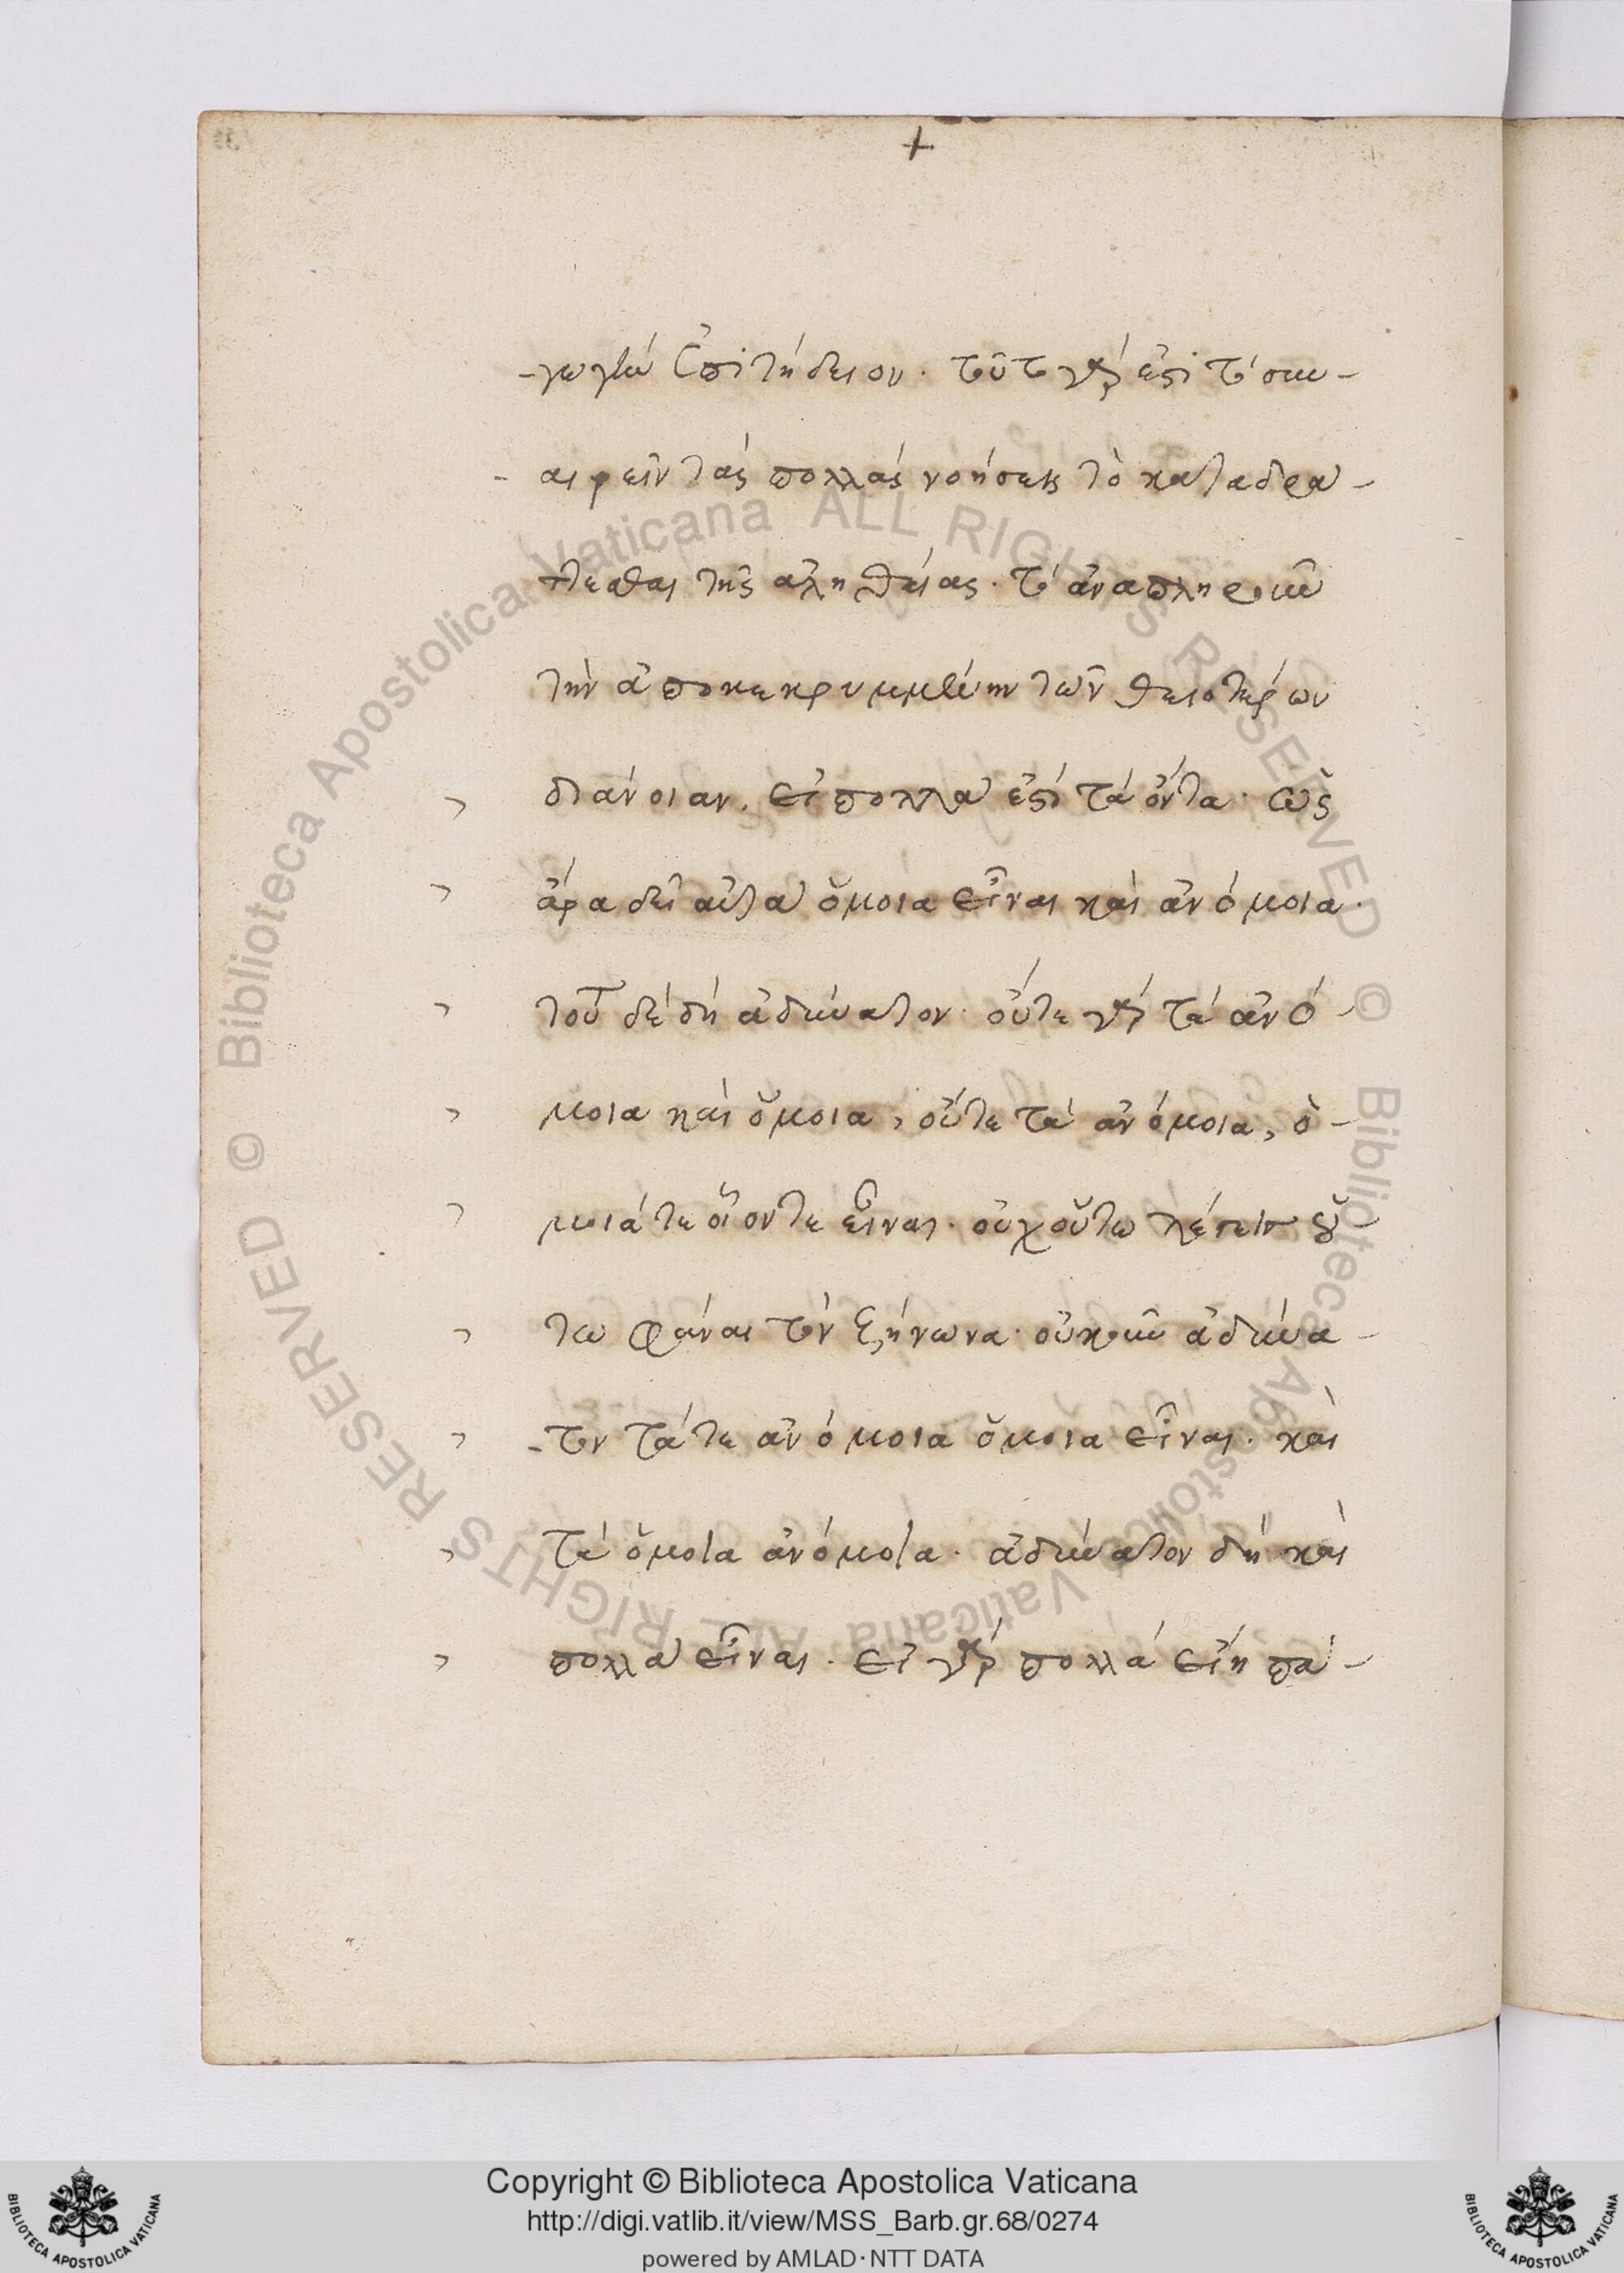 +
-γωγὴν ἐπιτήδειον· τοῦτο γάρ ἐστι τὸ συν-
-αιρεῖν τὰς πολλὰς νοήσεις τὸ καταδρα-
τῆς ἀληθείας· τὸ ἀναπληροῦν
τὴν ἀποκεκρυμμένην τῶν θειοτέρων
διάνοιαν. εἰ πολλά ἐστι τὰ ὄντα· ὡς
ἄρα δεῖ αὐτὰ ὅμοια εἶναι καὶ ἀνόμοια·
τοῦτο δὲ δὴ ἀδύνατον· οὔτε γὰρ τὰ ἀνό-
μοια καὶ ὅμοια, οὔτε τὰ ἀνόμοια, ὅ-
μοιά τε οἷόν τε εἶναι· οὐχ οὕτω λέγειν οὕ
τω φάναι τὸν ζήνωνα· οὐκοῦν ἀδύνα-
-τον τά τε ἀνόμοια ὅμοια εἶναι· καὶ
τὰ ὅμοια ἀνόμοια· ἀδύνατον δὴ καὶ
πολλὰ εἶναι· εἰ γὰρ πολλὰ εἴη πά-
© Biblioteca Apostolica Vaticana ALL RIGHTS RESERVED © Biblioteca Apostolica Vaticana ALL RIGHTS RESERVED
Copyright © Biblioteca Apostolica Vaticana
http://digi.vatlib.it/view/MSS_Barb.gr.68/0274
powered by AMLAD·NTT DATA
BIBLIOTECA APOSTOLICA VATICANA
BIBLIOTECA APOSTOLICA VATICANA